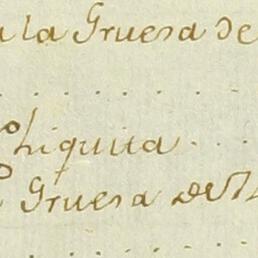 a la Gruesa de
chiquita
Gruesa de